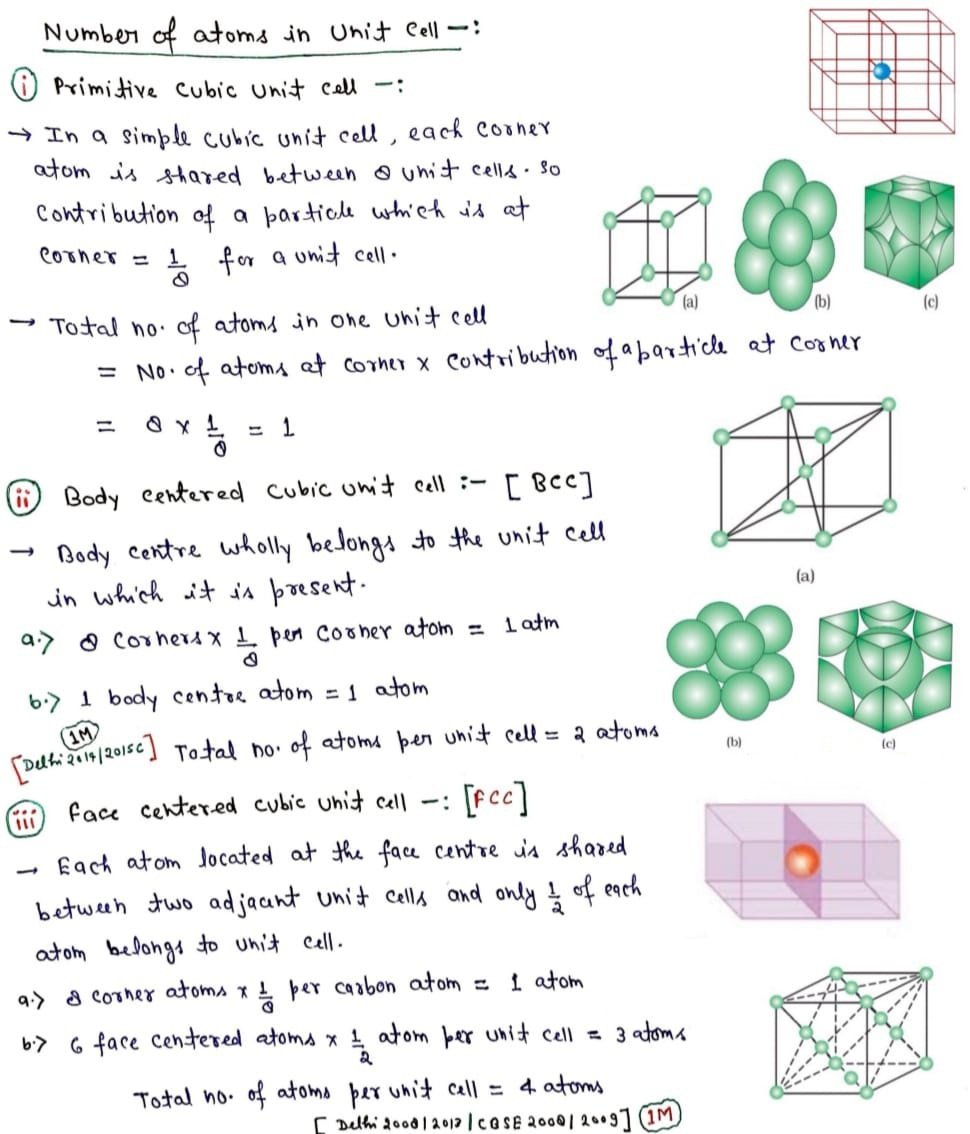 Number of atoms in Unit Cell -:
(i) Primitive Cubic Unit cell -:
→ In a simple cubic unit cell, each corner
atom is shared between 8 unit cells. so
Contribution of a particle which is at
Corner = 1/8 for a unit cell.
(a) (b) (c)
→ Total no. of atoms in one unit cell
= No. of atoms at corner x Contribution of a particle at corner
= 8 x 1/8 = 1
(ii) Body centered Cubic unit cell :- [BCC]
→ Body centre wholly belongs to the unit cell
in which it is present.
(a)
a.> 8 Corners x 1/8 per Corner atom = 1 atm
b.> 1 body centre atom = 1 atom
1M
[Delhi 2014/2015C] Total no. of atoms per unit cell = 2 atoms
(b) (c)
(iii) Face centered cubic unit cell -: [FCC]
→ Each atom located at the face centre is shared
between two adjacent unit cells and only 1/2 of each
atom belongs to unit cell.
a.> 8 corner atoms x 1/8 per carbon atom = 1 atom
b.> 6 face centered atoms x 1/2 atom per unit cell = 3 atoms
Total no. of atoms per unit cell = 4 atoms
[Delhi 2008/2017/CBSE 2008/2009] 1M